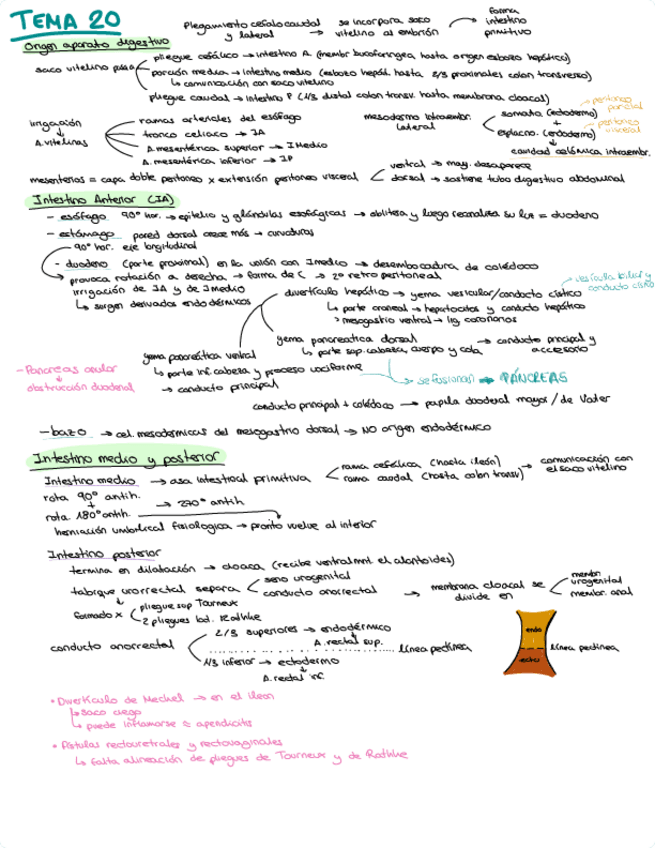 TEMA 20
Plegamiento cefalocaudal y lateral → se incorpora saco vitelino al embrión → forma intestino primitivo
Origen aparato digestivo
saco vitelino pasa
pliegue cefálico → intestino A. (membr bucofaríngea hasta origen esbozo hepático)
porción media → intestino medio (esbozo hepát. hasta 2/3 proximales colon transverso)
↳ comunicación con saco vitelino
pliegue caudal → intestino P (1/3 distal colon transv. hasta membrana cloacal)
irrigación
↓
A. vitelinas
ramas arteriales del esófago
tronco celiaco → IA
A. mesentérica superior → IMedio
A. mesentérica inferior → IP
mesodermo intraembr. lateral
somato. (ectodermo) → peritoneo parietal
+
esplacno. (endodermo) → peritoneo visceral
↓
cavidad celómica intraembr.
mesenterios = capa doble peritoneo x extensión peritoneo visceral
ventral → may. desaparece
dorsal → sostiene tubo digestivo abdominal
Intestino Anterior (IA)
- esófago 90º hor. → epitelio y glándulas esofágicas → oblitera y luego recanaliza su luz = duodeno
- estómago pared dorsal crece más → curvaturas
90º hor. eje longitudinal
- duodeno (parte proximal) en la unión con IMedio → desembocadura de colédoco
→ provoca rotación a derecha → forma de C → 2º retroperitoneal
irrigación de IA y de IMedio
↳ surgen derivados endodérmicos
divertículo hepático → yema vesicular/conducto cístico → vesícula biliar y conducto cístico
↳ parte craneal → hepatocitos y conducto hepático
mesogastrio ventral → lig. coronarios
yema pancreática dorsal → conducto principal y accesorio
↳ parte sup. cabeza, cuerpo y cola
yema pancreática ventral
↳ parte inf. cabeza y proceso unciforme
→ conducto principal
→ se fusionan → PÁNCREAS
- Páncreas anular
↓
obstrucción duodenal
conducto principal + colédoco → papila duodenal mayor / de Vater
- bazo → cel. mesodérmicas del mesogastrio dorsal → NO origen endodérmico
Intestino medio y posterior
Intestino medio → asa intestinal primitiva
rama cefálica (hasta íleon)
rama caudal (hasta colon transv)
→ comunicación con el saco vitelino
rota 90º antih.
+ → 270º antih
rota 180º antih.
herniación umbilical fisiológica → pronto vuelve al interior
Intestino posterior
termina en dilatación → cloaca (recibe ventralmnt el alantoides)
tabique urorrectal separa
seno urogenital
conducto anorrectal
→ membrana cloacal se divide en
membr urogenital
membr. anal
↓
formado x
pliegue sup Tourneux
2 pliegues lat. Rathke
conducto anorrectal
2/3 superiores → endodérmico
↓
A. rectal sup.
línea pectínea
1/3 inferior → ectodermo
↓
A. rectal inf.
endo
ecto
línea pectínea
• Divertículo de Meckel → en el íleon
↳ saco ciego
↳ puede inflamarse ≈ apendicitis
• Fístulas rectouretrales y rectovaginales
↳ falta alineación de pliegues de Tourneux y de Rathke